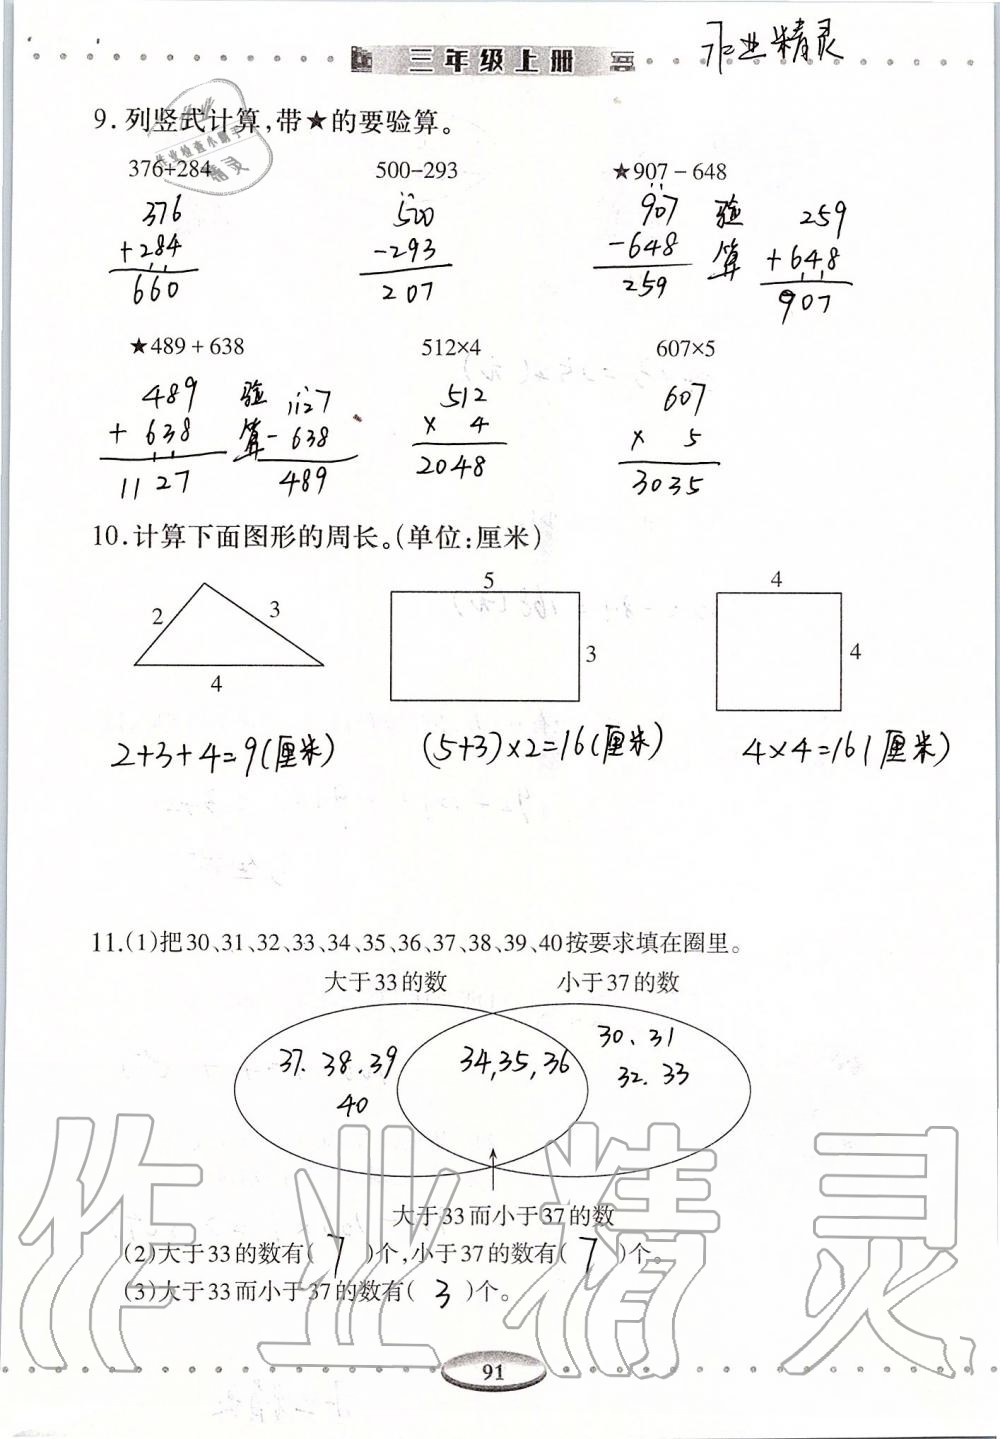 三年级上册
作业精灵
9.列竖式计算,带★的要验算。
作业
作业检查小帮手
精灵
376+284 500-293 ★907-648
376 500 907 验 259
+284 -293 -648 算 +648
660 207 259 907
★489+638 512×4 607×5
489 验 1127 512 607
+ 638 算 - 638 × 4 × 5
1127 489 2048 3035
10.计算下面图形的周长。(单位:厘米)
5 4
2 3 3 4
4
2+3+4=9(厘米) (5+3)×2=16(厘米) 4×4=16(厘米)
11.(1)把30、31、32、33、34、35、36、37、38、39、40按要求填在圈里。
大于33的数 小于37的数
37.38.39 34,35,36 30、31
40 32.33
大于33而小于37的数
(2)大于33的数有( 7 )个,小于37的数有( 7 )个。
(3)大于33而小于37的数有( 3 )个。
作业精灵
91